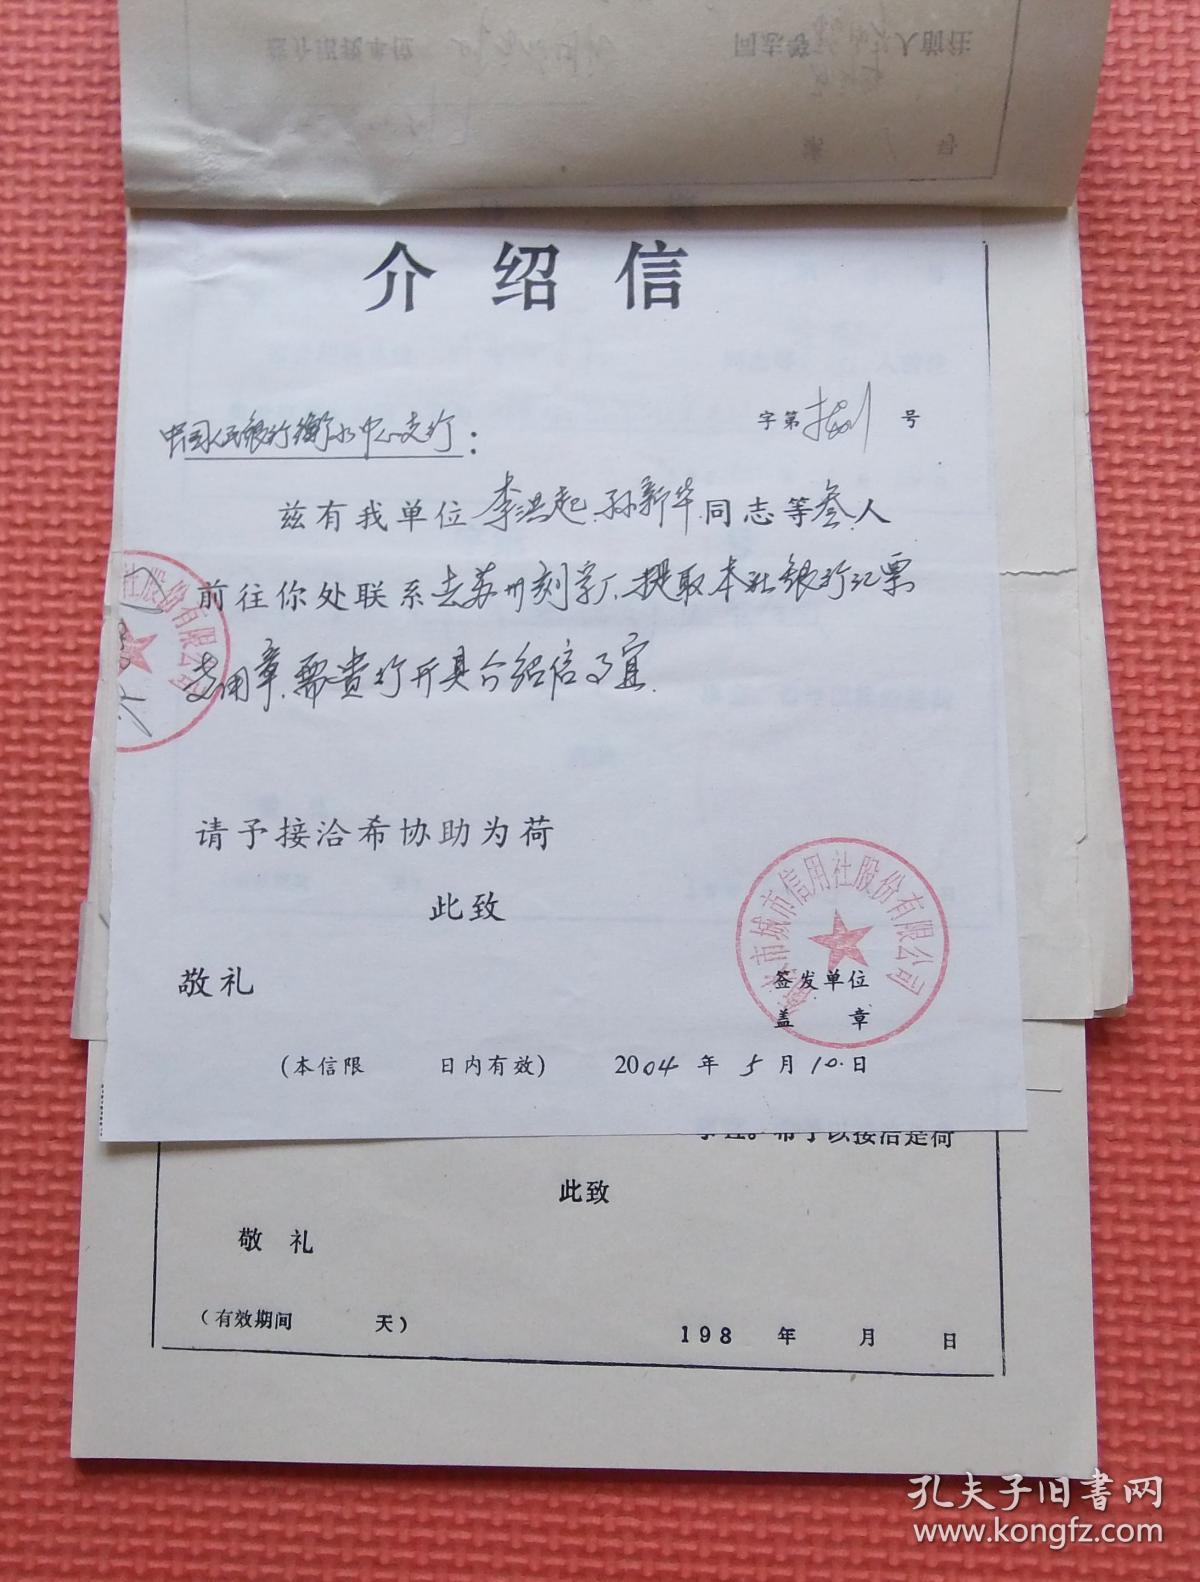 同志等
人前往
介绍信
字第 号
中国人民银行衡水中心支行：
兹有我单位李洪起、孙新华同志等叁人
前往你处联系去苏州刻字厂、提取本社银行汇票
专用章、需贵行开具介绍信事宜.
社股份有限公司
请予接洽希协助为荷
此致
敬礼
水市城市信用社股份有限公司
签发单位
盖 章
(本信限 日内有效) 2004年5月10日
希予以接洽是荷
此致
敬 礼
(有效期间 天)
198 年 月 日
孔夫子旧书网
www.kongfz.com